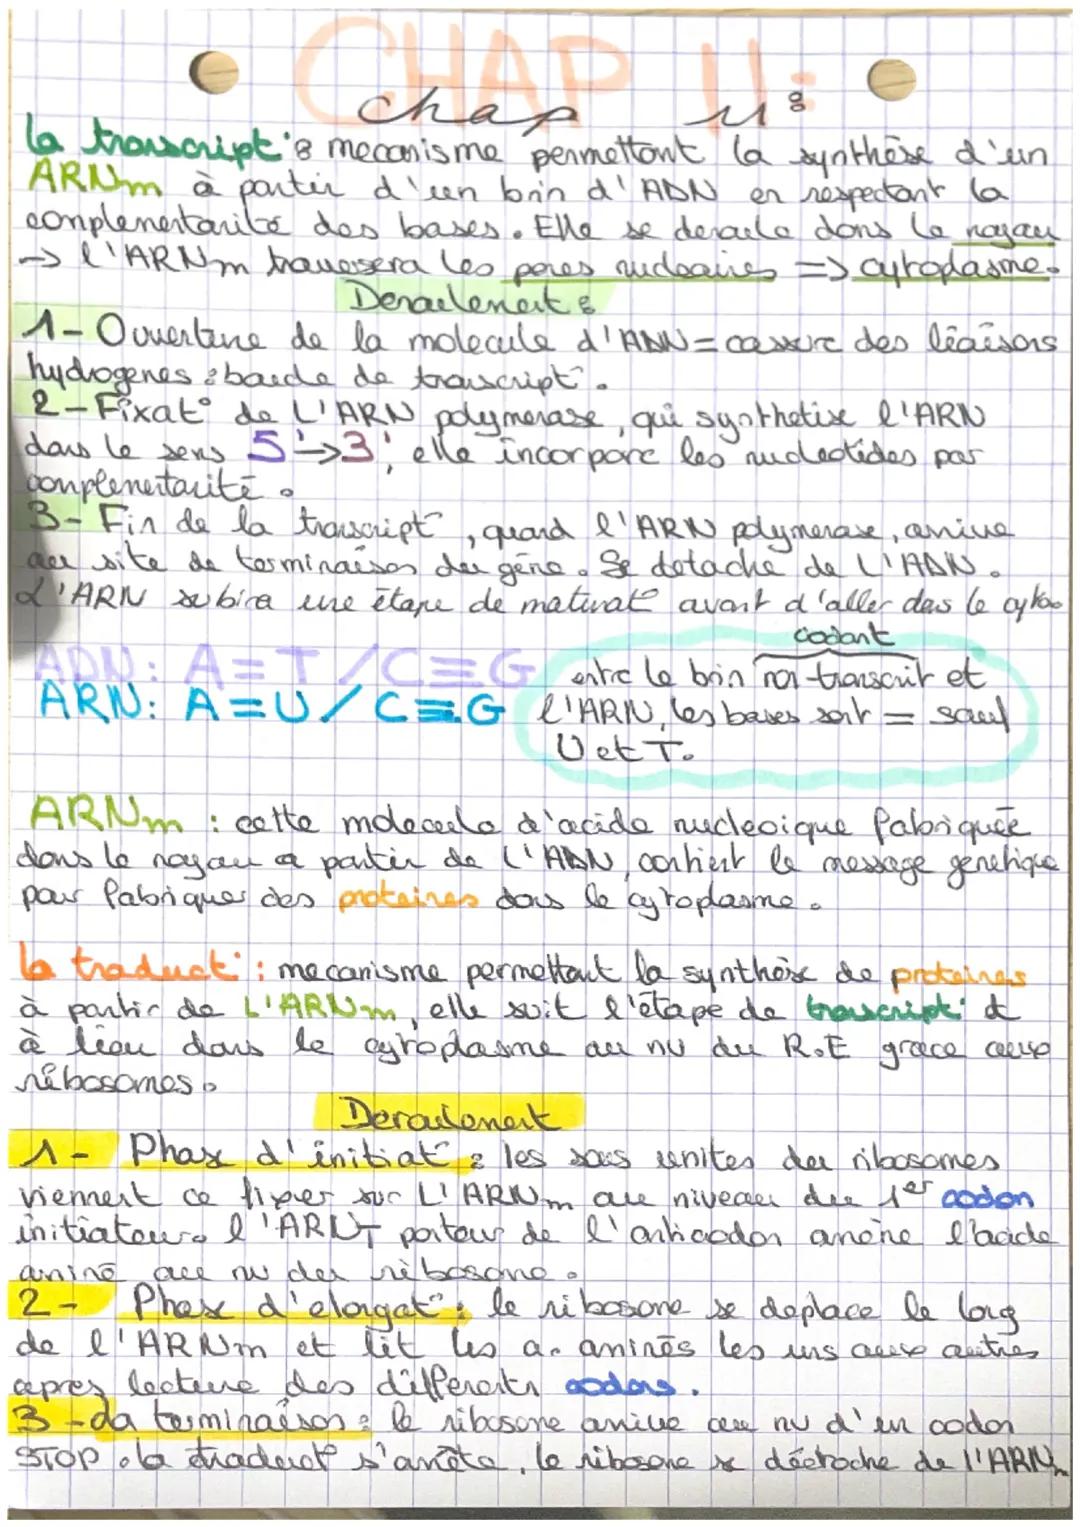 CHAP 11:
chap 11:
la transcript°: mecanisme permettant la synthèse d'un
ARNm à partir d'un brin d'ADN en respectant la
complementarité des bases. Elle se deroule dans le noyau
-> l'ARNm traversera les pores nucleaires => cytoplasme.
Deroulement:
1- Ouverture de la molecule d'ADN = cassure des liaisons
hydrogenes: boucle de transcript°.
2- Fixat° de L'ARN polymerase, qui synthetise l'ARN
dans le sens 5'->3', elle incorpore les nucleotides par
complementarité.
3- Fin de la transcript°, quand l'ARN polymerase, arrive
au site de terminaison du gène. Se detache de L'ADN.
L'ARN subira une étape de maturat° avant d'aller dans le cyto
ADN: A=T / C≡G
ARN: A=U / C≡G
codant
entre le brin non-transcrit et
l'ARN, les bases sont = sauf
U et T.
ARNm : cette molecule d'acide nucleoique fabriquée
dans le noyau a partir de l'ADN, contient le message genetique
pour fabriquer des proteines dans le cytoplasme.
la traduct°: mecanisme permettant la synthèse de proteines
à partir de L'ARNm, elle suit l'étape de transcript° et
à lieu dans le cytoplasme au nv du R.E grace aux
ribosomes.
Deroulement
1- Phase d'initiat°: les sous unites du ribosomes
viennent ce fixer sur L'ARNm au niveau du 1er codon
initiateur. l'ARNT porteur de l'anticodon amène l'acide
aminé au nv du ribosome.
2- Phase d'elongat°: le ribosome se deplace le long
de l'ARNm et lit les a. aminés les uns aux autres
apres lecture des differents codons.
3- La terminaison: le ribosome arrive au nv d'un codon
STOP. la traduct° s'arrête, le ribosome se décroche de l'ARNm